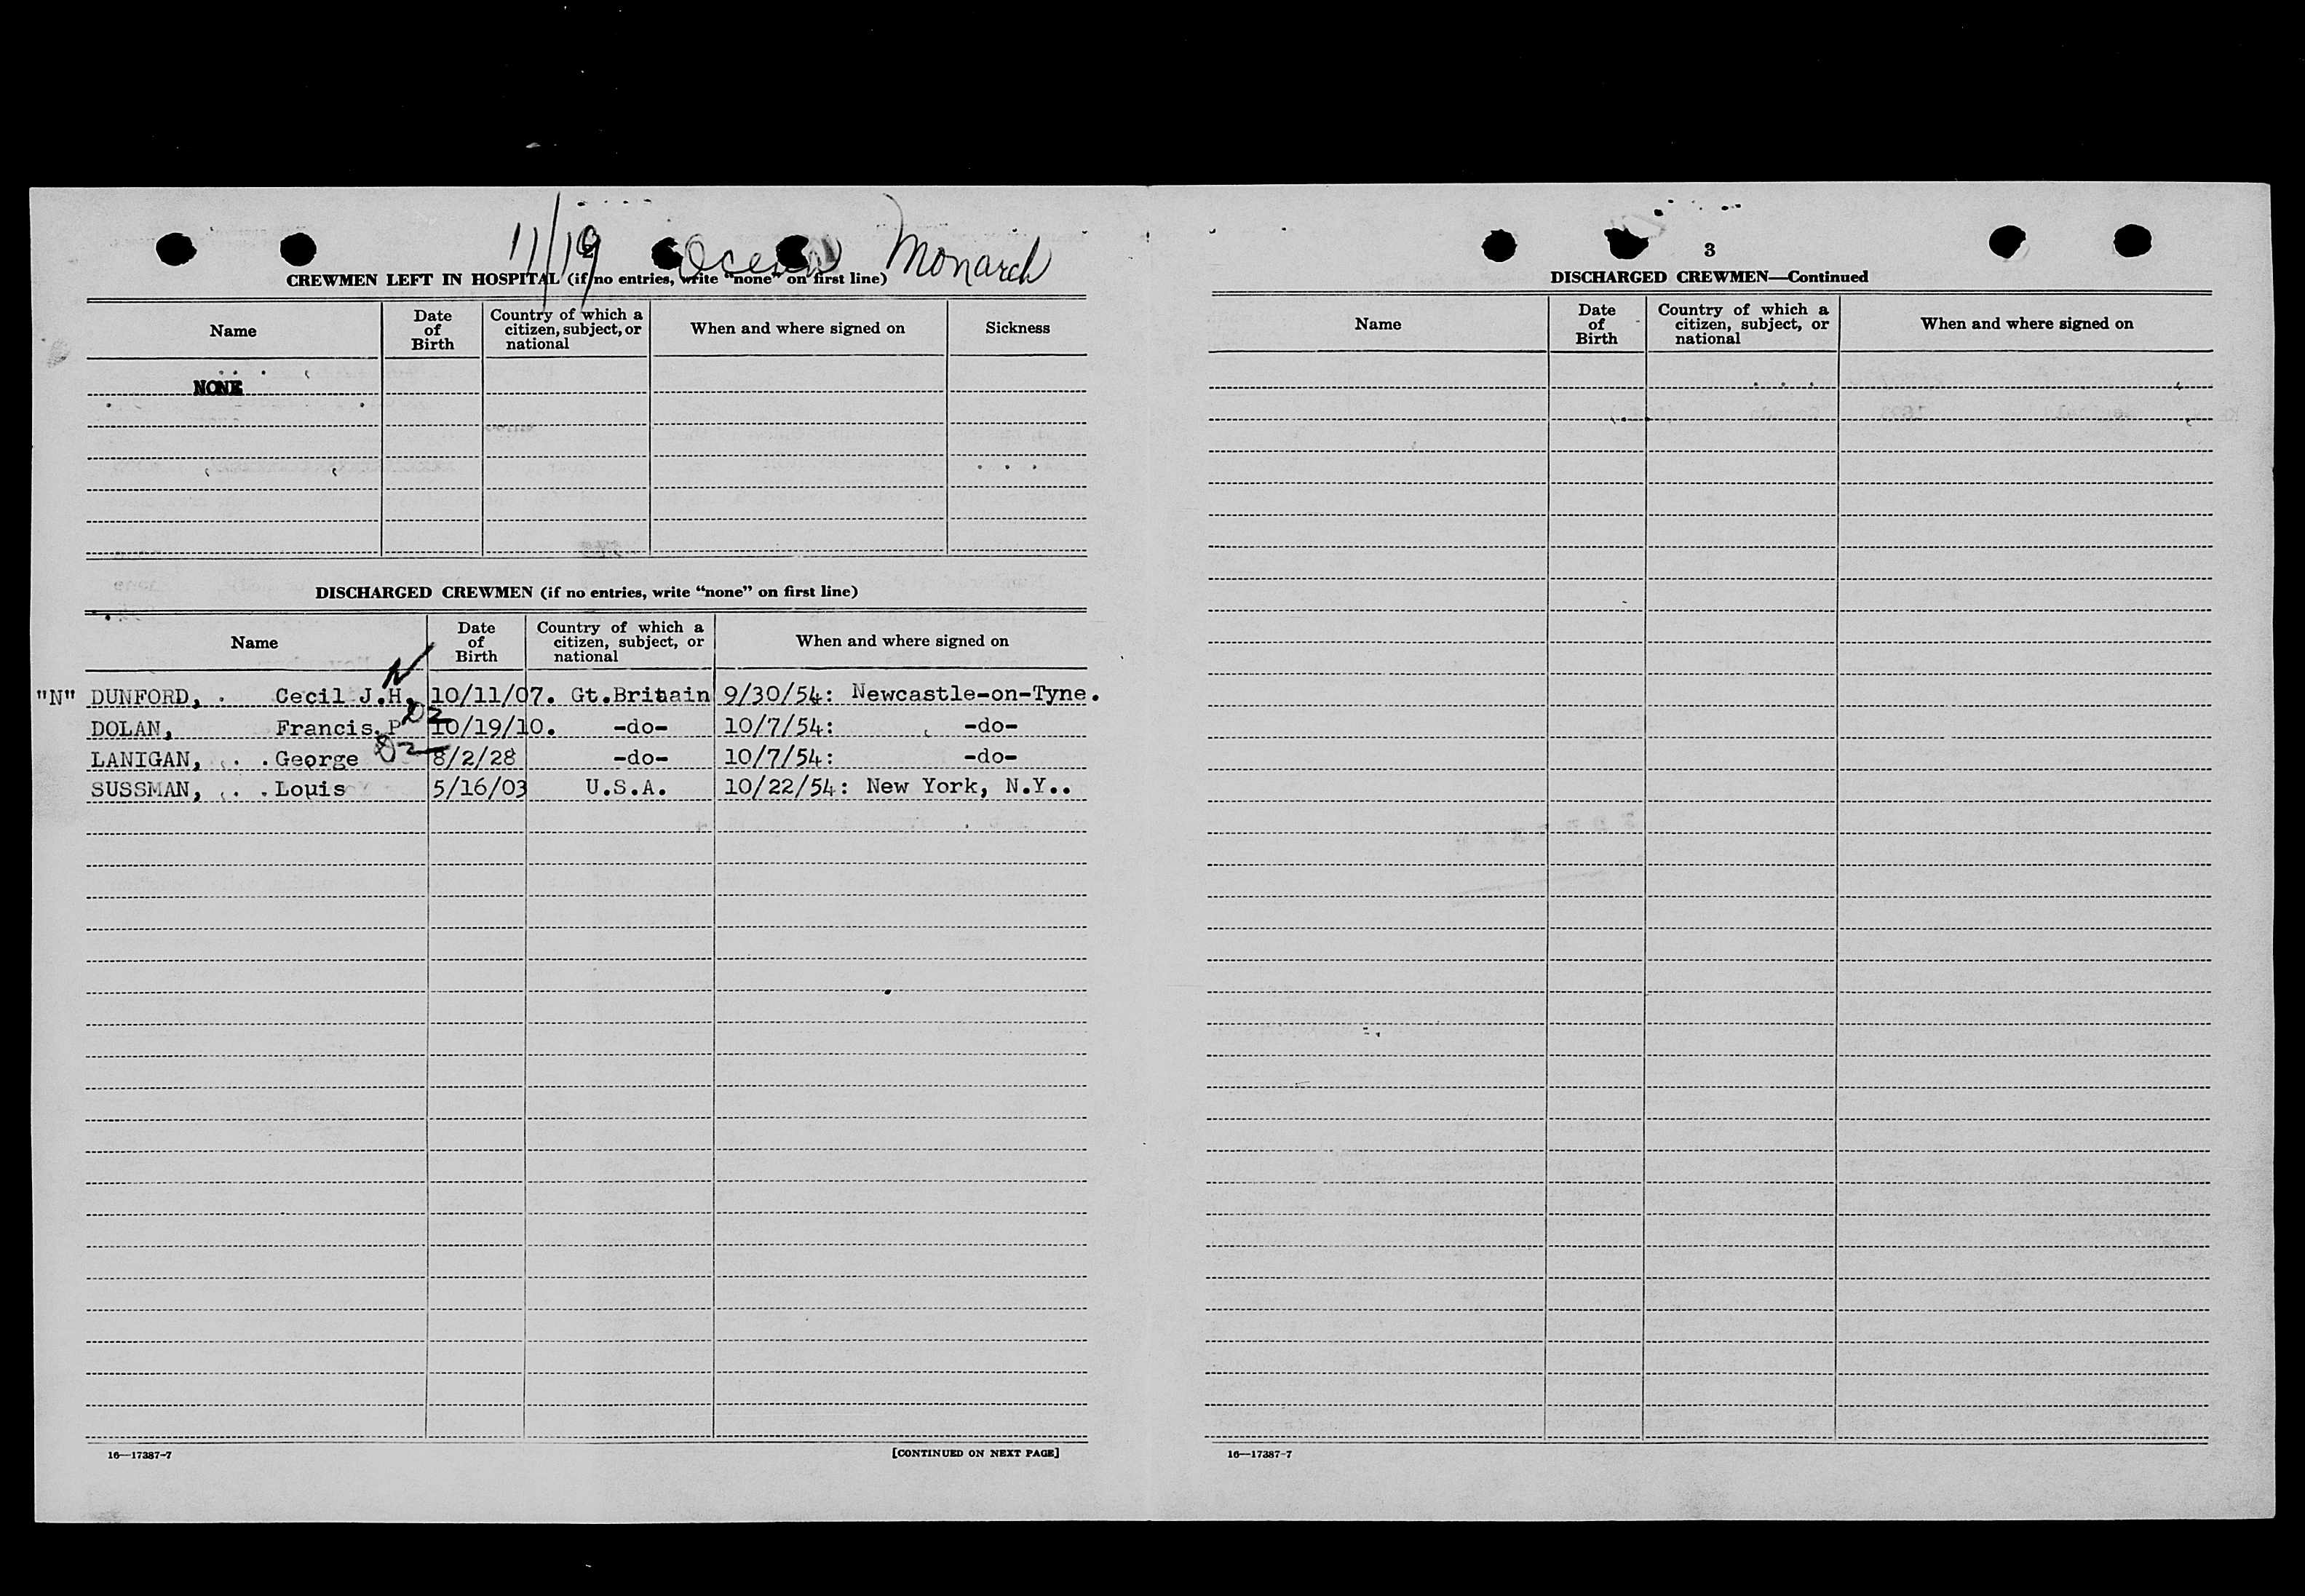 11/19 Ocean Monarch
CREWMEN LEFT IN HOSPITAL (if no entries, write "none" on first line)
Name
Date of Birth
Country of which a citizen, subject, or national
When and where signed on
Sickness
NONE
DISCHARGED CREWMEN (if no entries, write "none" on first line)
Name
Date of Birth
Country of which a citizen, subject, or national
When and where signed on
N
"N" DUNFORD, Cecil J.H. 10/11/07. Gt.Britain 9/30/54: Newcastle-on-Tyne.
DOLAN, Francis.P 10/19/10. -do- 10/7/54: -do-
LANIGAN, George 8/2/28 -do- 10/7/54: -do-
SUSSMAN, Louis 5/16/03 U.S.A. 10/22/54: New York, N.Y..
16—17387-7
[CONTINUED ON NEXT PAGE]
3
DISCHARGED CREWMEN—Continued
Name
Date of Birth
Country of which a citizen, subject, or national
When and where signed on
16—17387-7